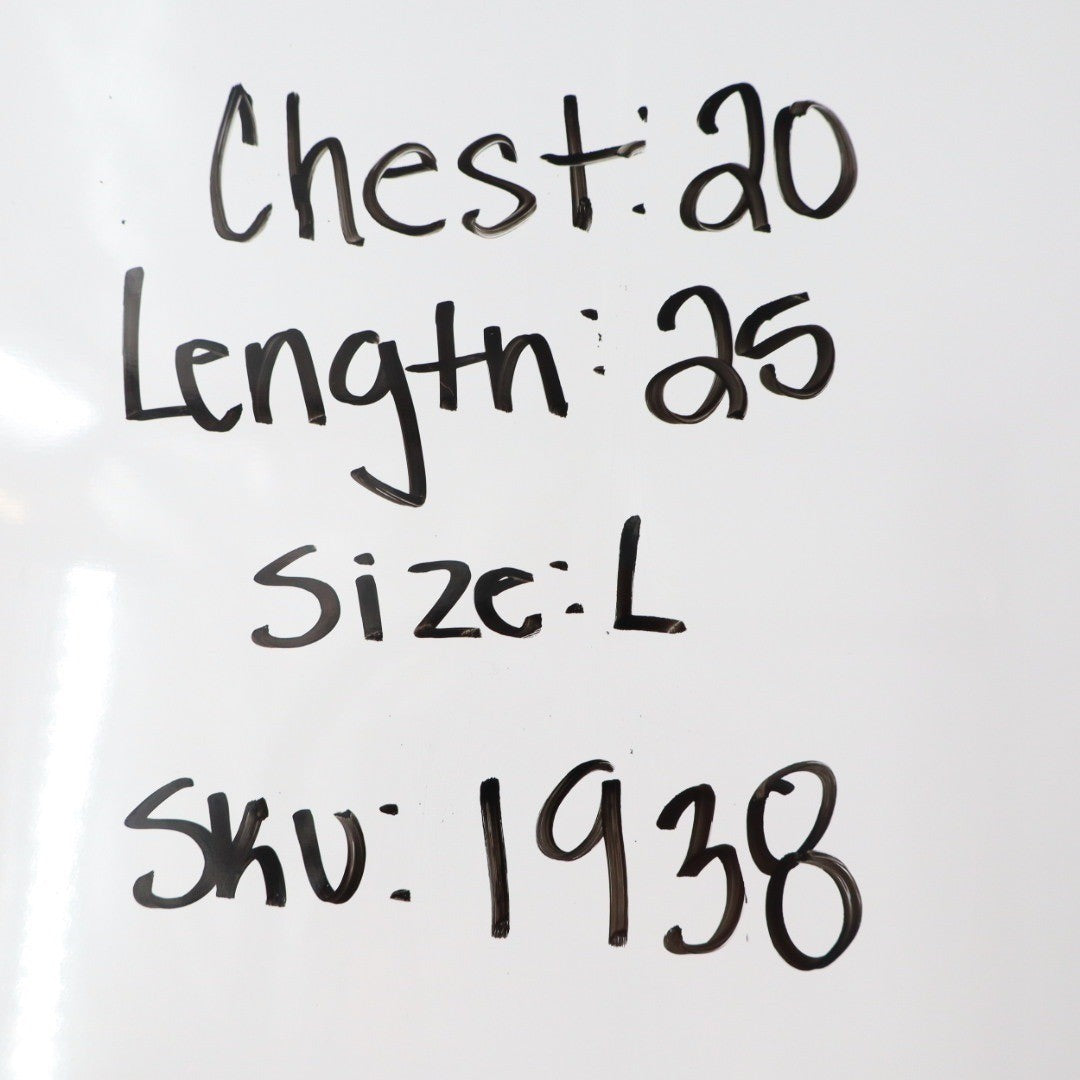 Chest: 20
Length: 25
Size: L
SKU: 1938